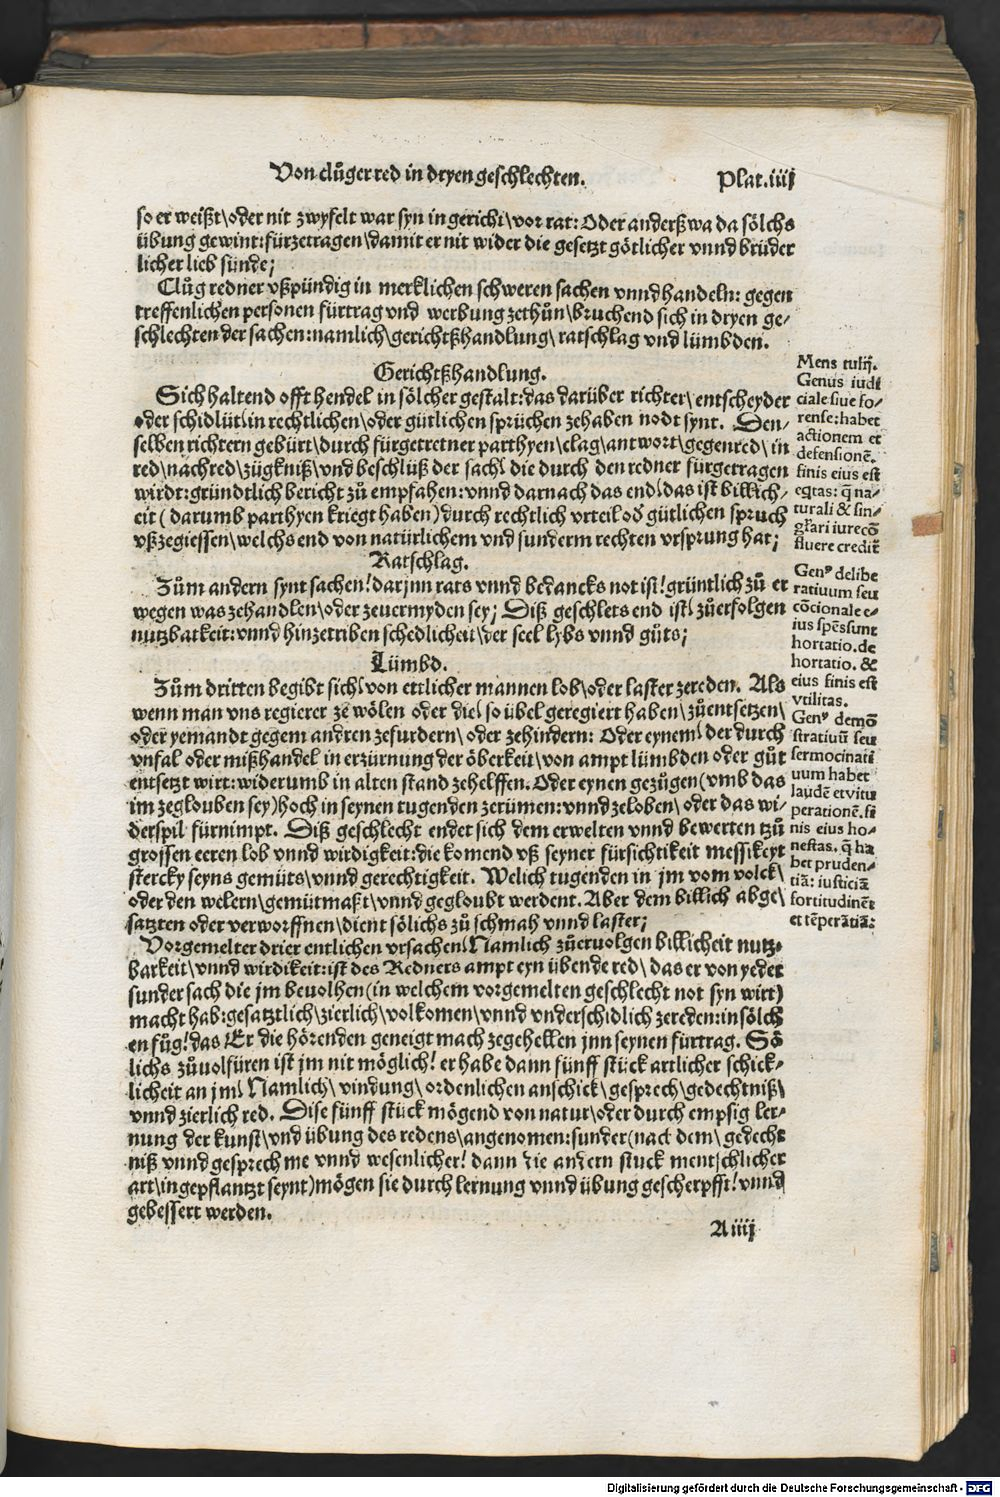 Von clůger red in dryen geschlechten.
Plat.iiij
so er weißt\oder nit zwyfelt war syn in gericht\vor rat: Oder anderßwa da sölchs
übung gewint:fürzetragen\damit er nit wider die gesetzt götlicher vnnd brüder
licher lieb sünde;
Clůg redner vßpündig in mercklichen schweren sachen vnnd handeln: gegen
treffenlichen personen fürtrag vnd werbung zethůn\bruchend sich in dryen ge⸗
schlechten der sachen:namlich\gerichtßhandlung\ratschlag vnd lümbden.
Gerichtßhandlung.
Sich haltend offt hendel in sölcher gestalt:das darüber richter\entscheyder
oder schidlüt\in rechtlichen\oder gütlichen sprüchen zehaben nodt synt. Den⸗
selben richtern gebürt\durch fürgetretner parthyen\clag\antwort\gegenred\in
red\nachred\zügkniß\vnd beschlüß der sach\die durch den redner fürgetragen
wirdt:gründtlich bericht zů empfahen:vnnd darnach das end\das ist billich⸗
eit (darumb parthyen kriegt haben) durch rechtlich vrteil od̕ gütlichen spruch
vßzegiessen\welchs end von natürlichem vnd sunderm rechten vrsprung hat;
Ratschlag.
Zům andern synt sachen! darjnn rats vnnd bedancks not ist! grüntlich zů er
wegen was zehandlen\oder zeuermyden sey; Diß geschlets end ist\zů erfolgen
nutzbatkeit:vnnd hinzetriben schedlicheit\der seel lybs vnnd gůts;
Lümbd.
Zům dritten begibt sich\von ettlicher mannen lob\oder laster zereden. Als
wenn man vns regierer ze wölen oder die\so übel geregiert haben\zů entsetzen\
oder yemandt gegem andren zefurdern\oder zehindern: Oder eynem\der durch
vnfal oder mißhandel in erzürnung der öberkeit\von ampt lümbden oder gůt
entsetzt wirt:widerumb in alten stand zehelffen. Oder eynen gezügen (vmb das
im zeglouben sey) hoch in seynen tugenden zerümen:vnnd zeloben\oder das wi⸗
derspil fürnimpt. Diß geschlecht endet sich dem erwelten vnnd bewerten tzů
grossen eeren lob vnnd wirdigkeit:die komend vß seyner fürsichtikeit messikeyt
stercky seyns gemüts\vnnd gerechtigkeit. Welich tugenden in jm vom volck\
oder den welern\gemütmaßt\vnnd gegloubt werdent. Aber dem billich abge\
satzten oder verworffnen\dient sölichs zů schmah vnnd laster;
Vorgemelter drier entlichen vrsachen\Namlich zů eruolgen billicheit nutz⸗
barkeit\vnnd wirdikeit:ist des Redners ampt eyn übende red\das er von yeder
sunder sach die jm beuolhen (in welchem vorgemelten geschlecht not syn wirt)
macht hab:gesatztlich\zierlich\volkomen\vnnd vnderschidlich zereden:in sölch
en fůg! das Er die hörenden geneigt mach zegehellen jnn seynen fürtrag. Sö
lichs zůuolfüren ist jm nit möglich! er habe dann fünff stück artlicher schick⸗
licheit an jm\Namlich\vindung\ordenlichen anschick\gesprech\gedechtniß\
vnnd zierlich red. Dise fünff stück mögend von natur\oder durch empsig ler⸗
nung der kunst\vnd übung des redens\angenomen:sunder (nach dem\gedecht
niß vnnd gesprech me vnnd wesenlicher! dann die andern stuck mentschlicher
art\ingepflantzt seynt) mögen sie durch lernung vnnd übung gescherpfft! vnnd
gebessert werden.
A iiij
Mens tulij.
Genus iudi
ciale siue fo⸗
rense:habet
actionem et
defensionē.
finis eius est
eq̄tas: q̄ na⸗
turali & sin⸗
gl̄ari iure cō
fluere credit̄
Genꝰ delibe
ratiuum seu
cōcionale e⸗
ius spēs sunt
hortatio. de
hortatio. &
eius finis est
vtilitas.
Genꝰ demō
stratiuū seu
sermocinati
uum habet
laudē et vitu
perationē. fi
nis eius ho⸗
nestas. q̄ ha
bet pruden⸗
tiā: iusticiā
fortitudinē
et tēperātiā:
Digitalisierung gefördert durch die Deutsche Forschungsgemeinschaft - DFG